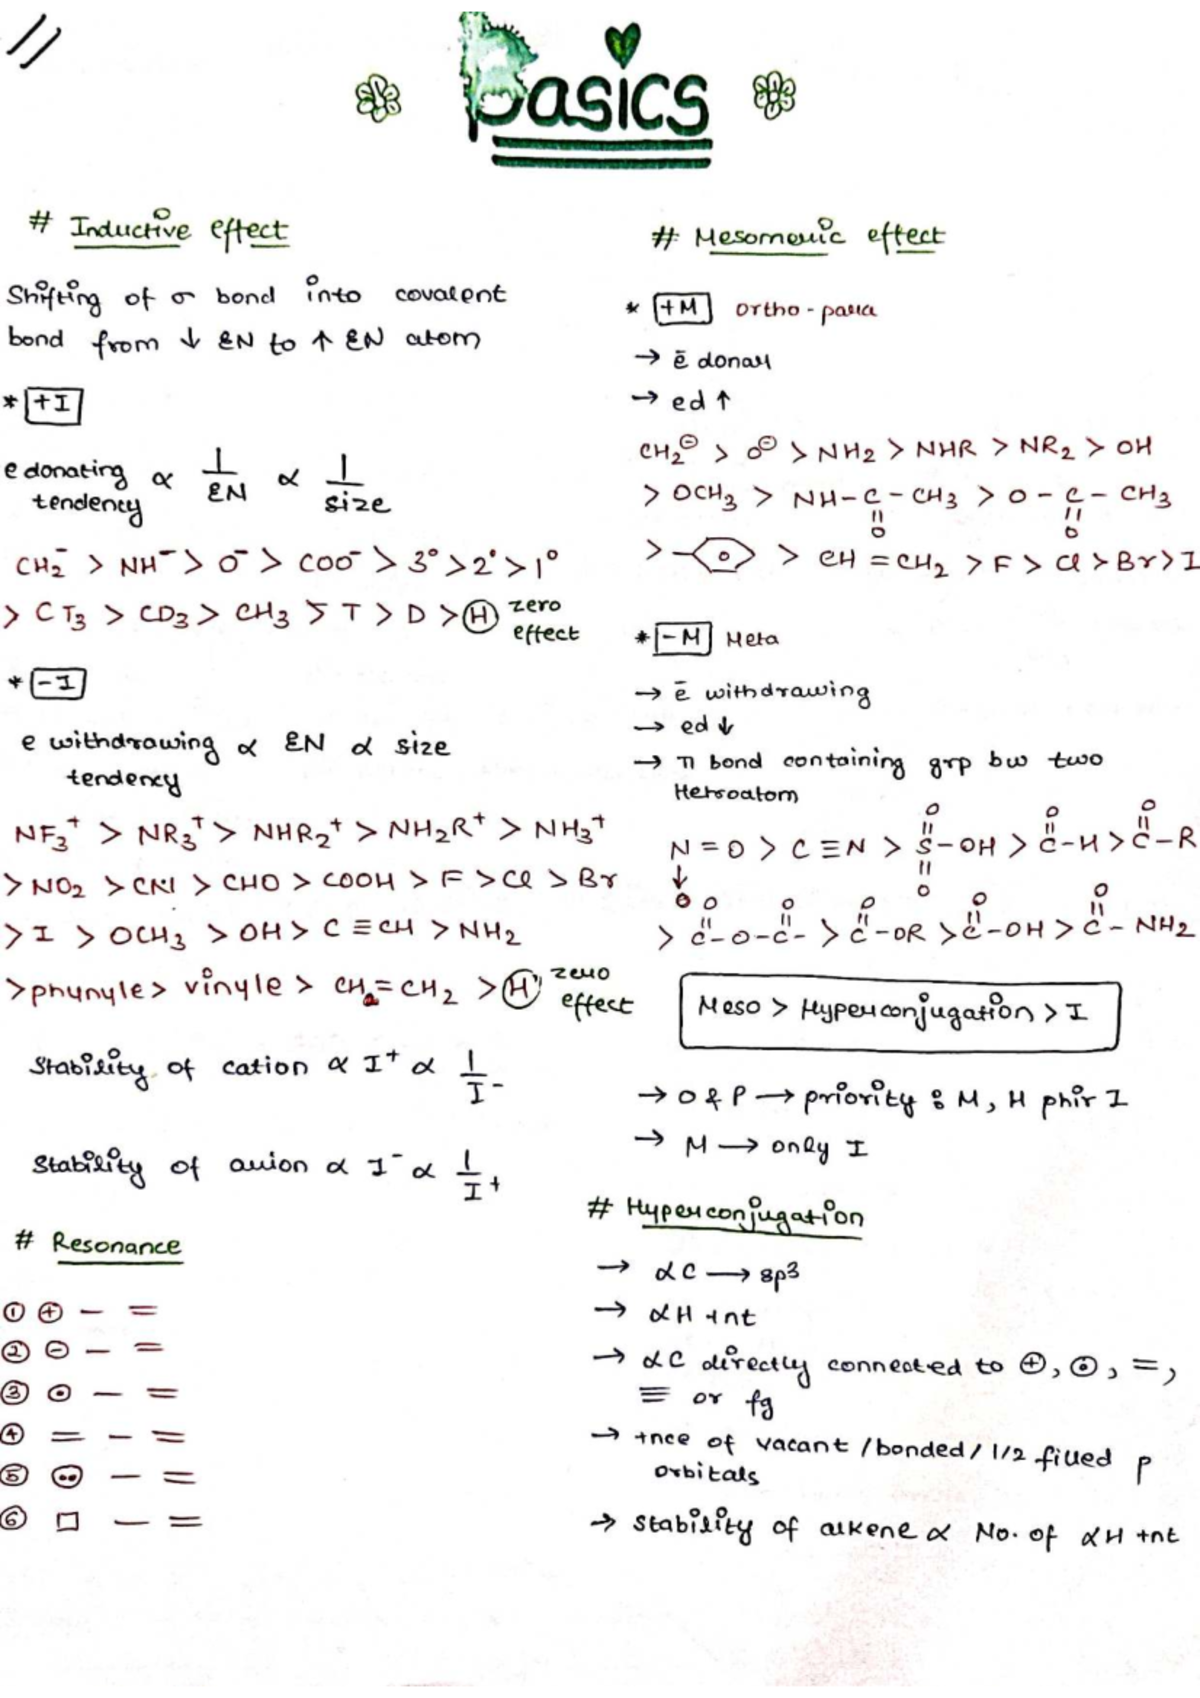 Basics
# Inductive effect
Shifting of σ bond into covalent
bond from ↓ EN to ↑ EN atom
* +I
e donating tendency ∝ 1/EN ∝ 1/size
CH2⁻ > NH⁻ > O⁻ > COO⁻ > 3° > 2° > 1°
> CT3 > CD3 > CH3 > T > D > H zero effect
* -I
e withdrawing ∝ EN ∝ size
tendency
NF3⁺ > NR3⁺ > NHR2⁺ > NH2R⁺ > NH3⁺
> NO2 > CN > CHO > COOH > F > Cl > Br
> I > OCH3 > OH > C≡CH > NH2
> phynyle > vinyle > CH=CH2 > H zero effect
Stability of cation ∝ I⁺ ∝ 1/I⁻
Stability of anion ∝ I⁻ ∝ 1/I⁺
# Resonance
① ⊕ – =
② ⊖ – =
③ ⊙ – =
④ = – =
⑤ •• – =
⑥ □ – =
# Mesomeric effect
* +M ortho-para
→ ē donar
→ ed ↑
CH2⊖ > O⊖ > NH2 > NHR > NR2 > OH
> OCH3 > NH-C-CH3 > O-C-CH3
|| ||
O O
> > CH=CH2 > F > Cl > Br > I
* -M Meta
→ ē withdrawing
→ ed ↓
→ π bond containing grp bw two
Hetroatom
O O O
|| || ||
N=O > C≡N > S-OH > C-H > C-R
↓ ||
O O
O O O O O
|| || || || ||
> C-O-C- > C-OR > C-OH > C-NH2
Meso > Hyperconjugation > I
→ O & P → priority : M, H phir I
→ M → only I
# Hyperconjugation
→ αC → sp3
→ αH +nt
→ αC directly connected to ⊕, ⊙, =,
≡ or fg
→ +nce of vacant/bonded/1/2 filled p
orbitals
→ Stability of alkene ∝ No. of αH +nt